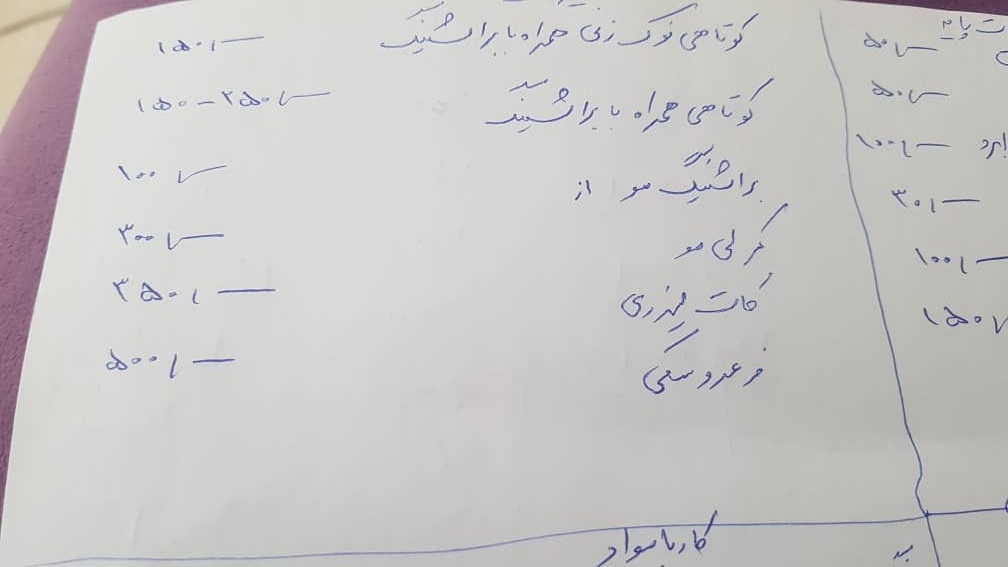 کوتاهی نوک زنی همراه با براشینگ ۱۵۰/—
کوتاهی همراه با براشینگ ۱۵۰-۲۵۰/—
براشینگ مو از ۱۰۰/—
کرلی مو ۳۰۰/—
کات لیزری ۳۵۰/—
فر عروسکی ۵۰۰/—
۵۰/—
۵۰/—
۱۰۰/—
۳۰/—
۱۰۰/—
۱۵۰/
کار با مواد